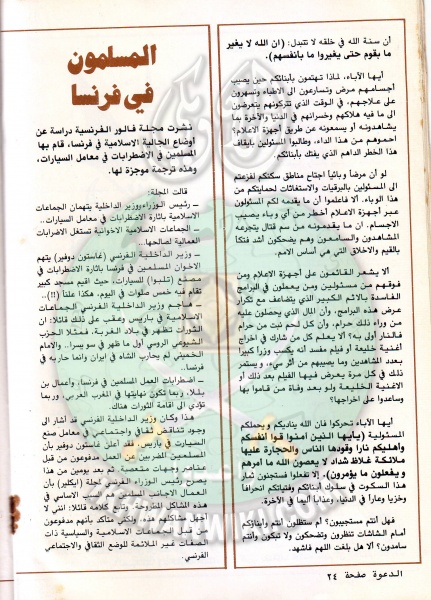 أن سنة الله في خلقه لا تتبدل: (ان الله لا يغير
ما بقوم حتى يغيروا ما بأنفسهم).
أيها الآباء، لماذا تهتمون بأبنائكم حين يصيب
أجسامهم مرض وتسارعون الى الاطباء وتسهرون
على علاجهم، في الوقت الذي تتركونهم يتعرضون
الى ما فيه هلاكهم وخسرانهم في الدنيا والآخرة بما
يشاهدونه أو يسمعونه عن طريق أجهزة الاعلام؟
احموهم من هذا الداء، وطالبوا المسئولين بايقاف
هذا الخطر الداهم الذي يفتك بأبنائكم.
لو أن مرضا وبائيا اجتاح مناطق سكنكم لفزعتم
الى المسئولين بالبرقيات والاستغاثات لحمايتكم من
هذا الوباء. ألا فاعلموا أن ما يقدمه لكم المسئولون
عبر أجهزة الاعلام أخطر من أي وباء يصيب
الاجسام. ان ما يقدمونه من سم قتال يتجرعه
المشاهدون والسامعون وهم يضحكون أشد فتكاً
بالقيم والاخلاق التي هي أساس الامم.
ألا يشعر القائمون على أجهزة الاعلام ومن
فوقهم من مسئولين ومن يعملون في البرامج
الفاسدة بالاثم الكبير الذي يتضاعف مع تكرار
عرض هذه البرامج، وأن المال الذي يحصلون عليه
من وراء ذلك حرام، وأن كل لحم نبت من حرام
فالنار أولى به؟ ألا يعلم كل من شارك في اخراج
أغنية خليعة أو فيلم مفسد أنه يكسب وزراً كبيرا
بعدد المشاهدين وما يصيبهم من أثر سيء، ويستمر
في كل مرة يعرض فيها الفيلم بعد ذلك أو
الاغنية الخليعة ولو بعد وفاة من قاموا بها
وساعدوا على اخراجها؟
أيها الآباء تحركوا فان الله يناديكم ويحملكم
المسئولية (يأيها الذين آمنوا قوا أنفسكم
وأهليكم نارا وقودها الناس والحجارة عليها
ملائكة غلاظ شداد لا يعصون الله ما أمرهم
ويفعلون ما يؤمرون)، إلا تفعلوا فستجنون ثمار
هذا السكوت في سلوك أبنائكم وفتياتكم انحرافاً
وخزيا وعاراً في الدنيا، وعذابا أليما في الآخرة.
فهل أنتم مستجيبون؟ أم ستظلون أنتم وأبناؤكم
أمام الشاشات تنظرون وتضحكون ولا تبكون وأنتم
سامدون؟ ألا هل بلغت اللهم فاشهد.
المسلمون
في فرنسا
نشرت مجلة فالور الفرنسية دراسة عن
أوضاع الجالية الاسلامية في فرنسا، قام بها
المسلمين في الاضطرابات في معامل السيارات،
وهذه ترجمة موجزة لها.
قالت المجلة:
ــ رئيس الوزراء ووزير الداخلية يتهمان الجماعات
الاسلامية باثارة الاضطرابات في معامل السيارات..
ــ الجماعات الاسلامية الاخوانية تستغل الاضرابات
العمالية لصالحها...
ــ وزير الداخلية الفرنسي (غاستون دوفير) يتهم
الاخوان المسلمين في فرنسا باثارة الاضطرابات في
مصنع (تلبوا) للسيارات، حيث اقيم مسجد كبير
تقام فيه خمس صلوات في اليوم، هكذا علنا (!!)..
ــ هاجم وزير الداخلية الفرنسي الجماعات
الاسلامية في باريس وعقب على ذلك قائلا: ان
الثورات تظهر في بلاد الغربة، فمثلا الحزب
الشيوعي الروسي أول ما ظهر في سويسرا.. والامام
الخميني لم يحارب الشاه في ايران وانما حاربه في
فرنسا.
ــ اضطرابات العمل المسلمين في فرنسا، وأعمال بن
بللا، ربما تكون نهايتها في المغرب العربي، وربما
تؤدي الى اقامة الثورات هناك.
هذا وكان وزير الداخلية الفرنسي قد أشار الى
وجود تناقض ثقافي واجتماعي في معامل صنع
السيارات في باريس، فقد أعلن غاستون دوفير بأن
المسلمين المضربين عن العمل مدفوعون من قبل
عناصر وجهات متعصبة. ثم بعد يومين من هذا
صرح رئيس الوزراء الفرنسي لمجلة (ايكلير) بأن
العمال الاجانب المسلمين هم السبب الاساسي في
هذه المشاكل
قبل الجماعات الاسلامية والسياسية ذات
غير الملائمة للوضع الثقافي والاجتماعي
الفرنسي.
الدعوة صفحة ٢٤